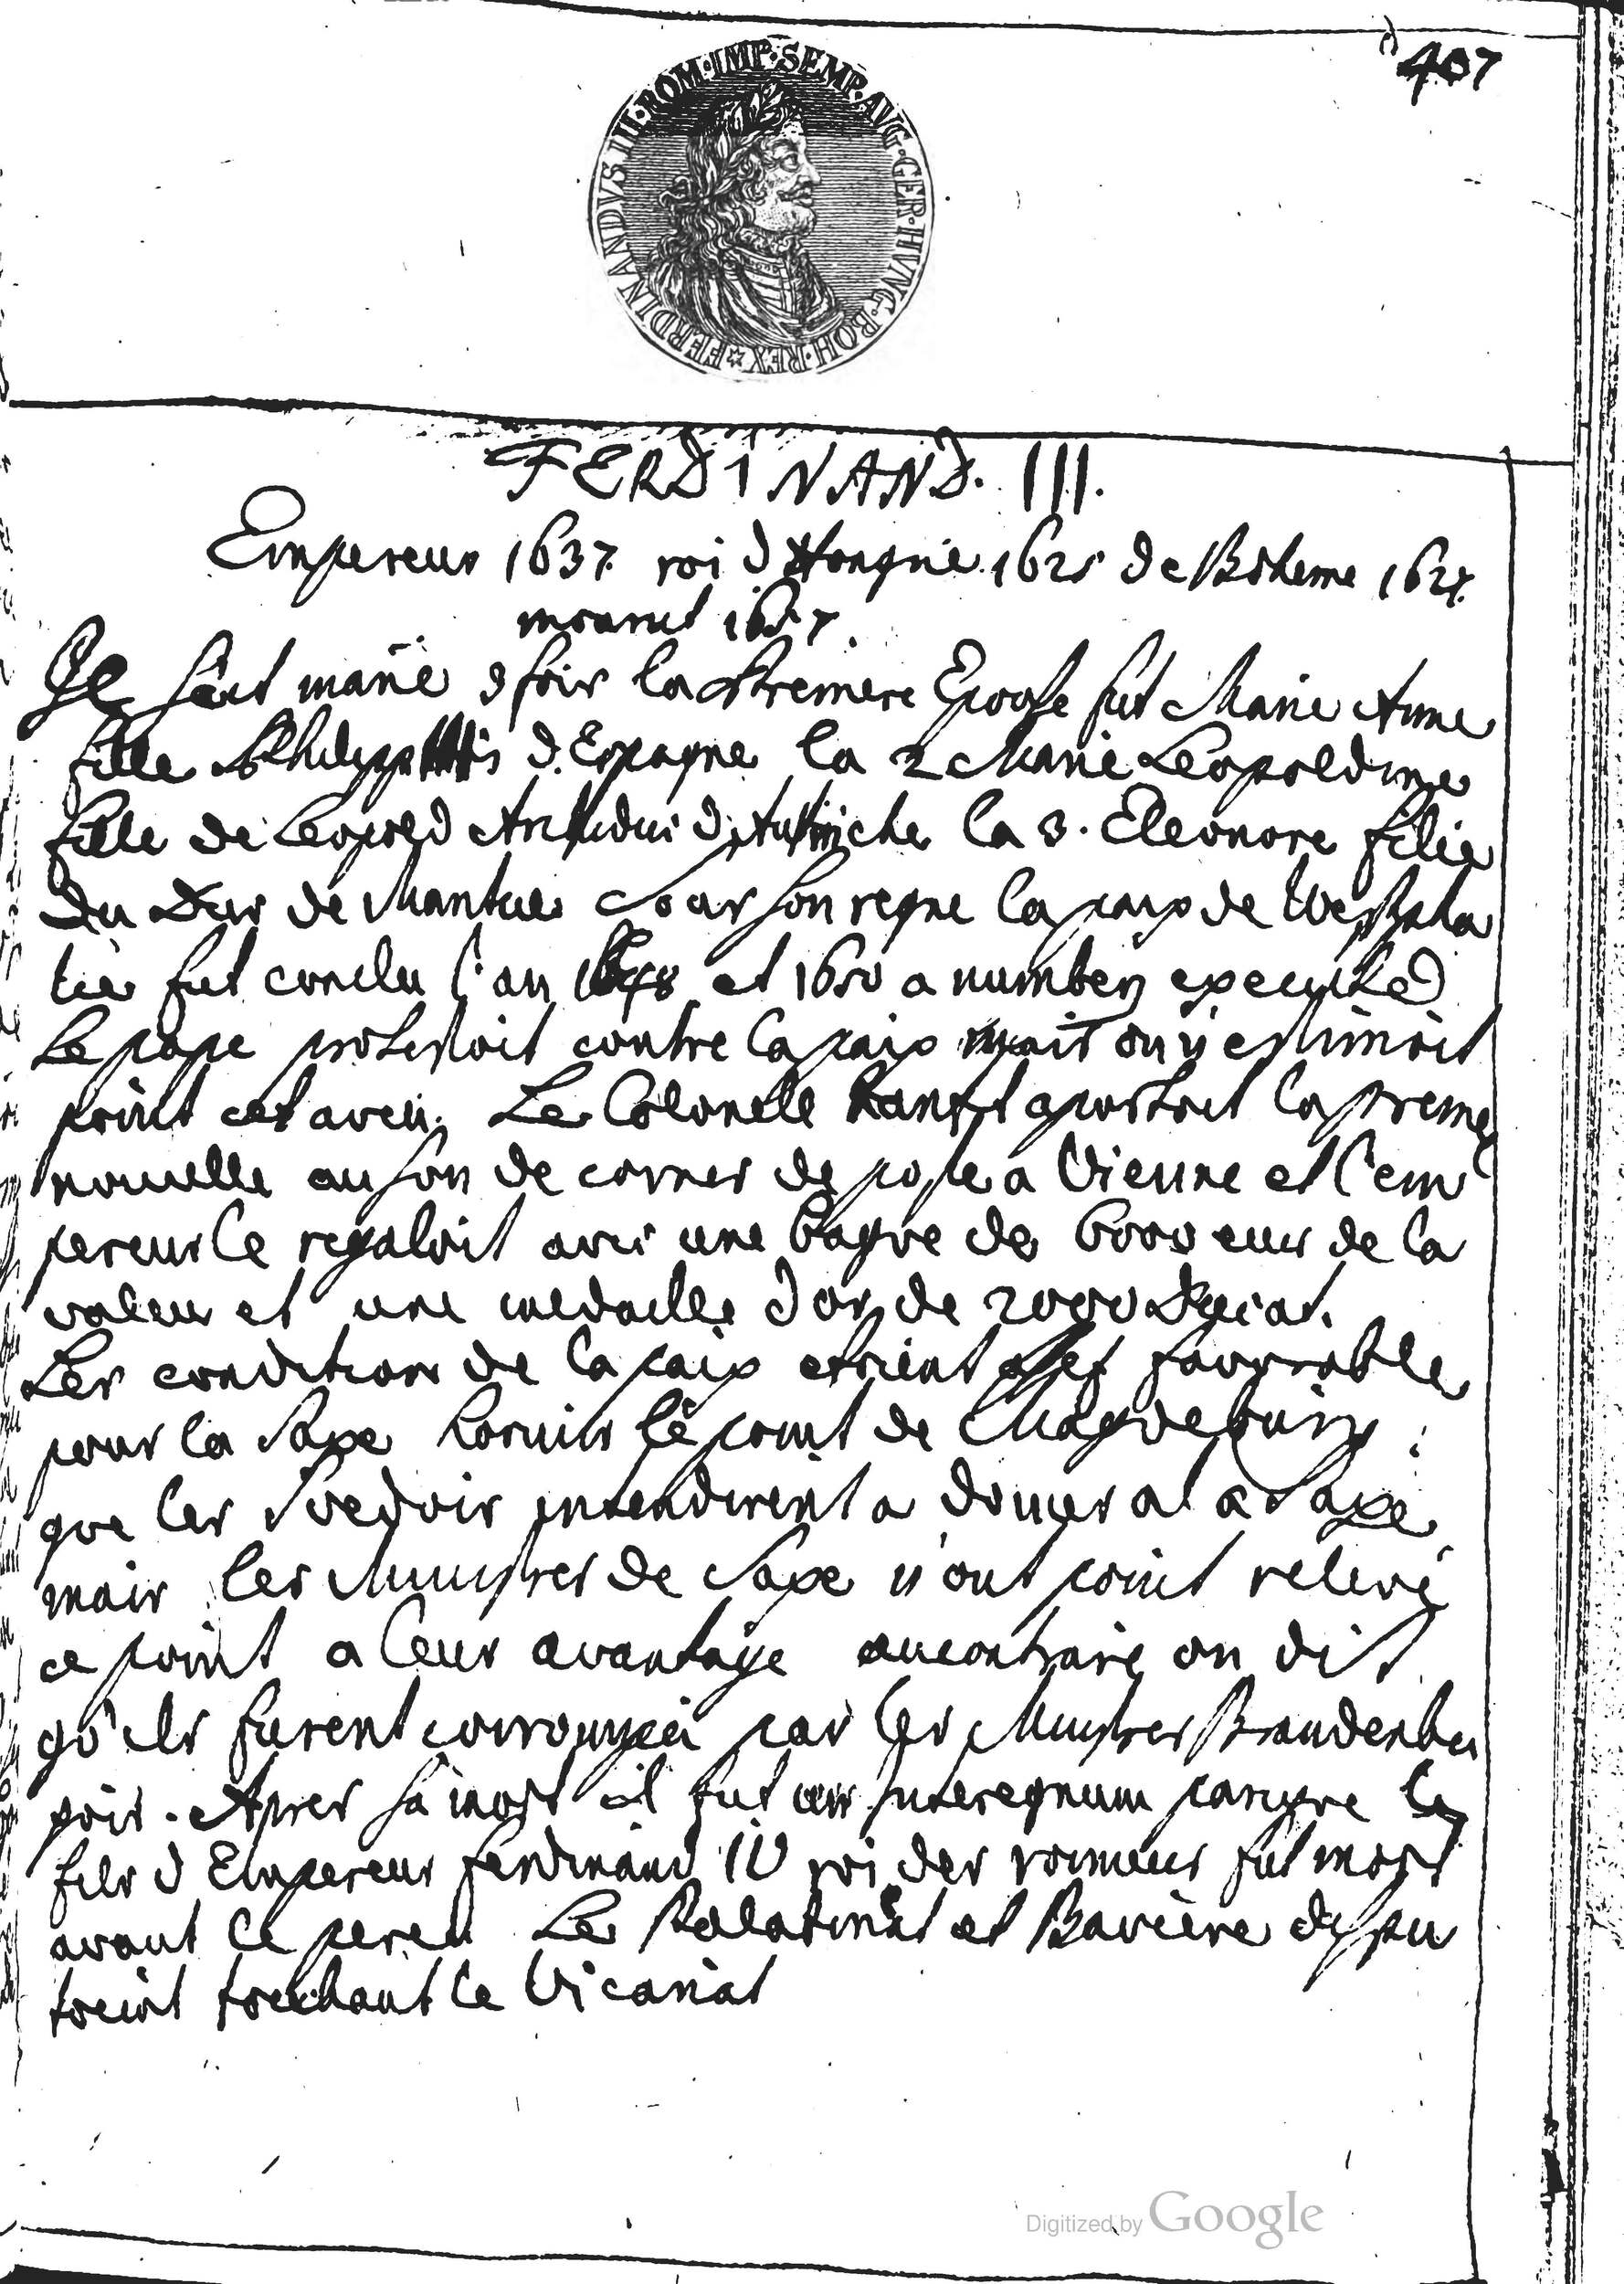 407
FERDINANDVS III·ROM·IMP·SEMP·AVG·GER·HVNG·BOH·REX
FERDINAND. III.
Empereur 1637. roi d Hongrie. 1625 de Boheme 1627.
mourut 1657.
Il sêut marié 3 fois la Premiere Epouse fut Marie Anne
fille Philipp d. Espagne la 2 Marie Leopoldine
fille de Leopold Archiduc d. Autriche la 3. Eleonore filie
du Duc de Mantue Sour son regne la paix de Westpha
lie fut conclu l'an 1648 et 1650 a nurnberg executée
Le pape protestoit contre la paix mais on n'estimoit
point cet aveu. Le Colonell Ranft aportoit la preme
nouvelle au son de cornes de poste a Vienne et l'em
pereur le regaloit avec une bague de 6000 ecus de la
valeur et une medaille d'or de 2000 Ducat.
Les condition de la paix etoient assez favorable
pour la Saxe hormis le point de Magdebourg
que les Svedois intendirent a donner a la Saxe
mais les Ministres de Saxe n'ont point relevé
ce point a leur avantage aucontraire on dit
qu'ils furent corrompu par les Ministres Brandenbu
gois. Apres sa mort il fut un Interegnum parceque le
fils d Empereur Ferdinand IV roi des romains fut mort
avant le pere. Le Palatinat et Baviere dispu
toient touchant le Vicariat
Digitized by Google